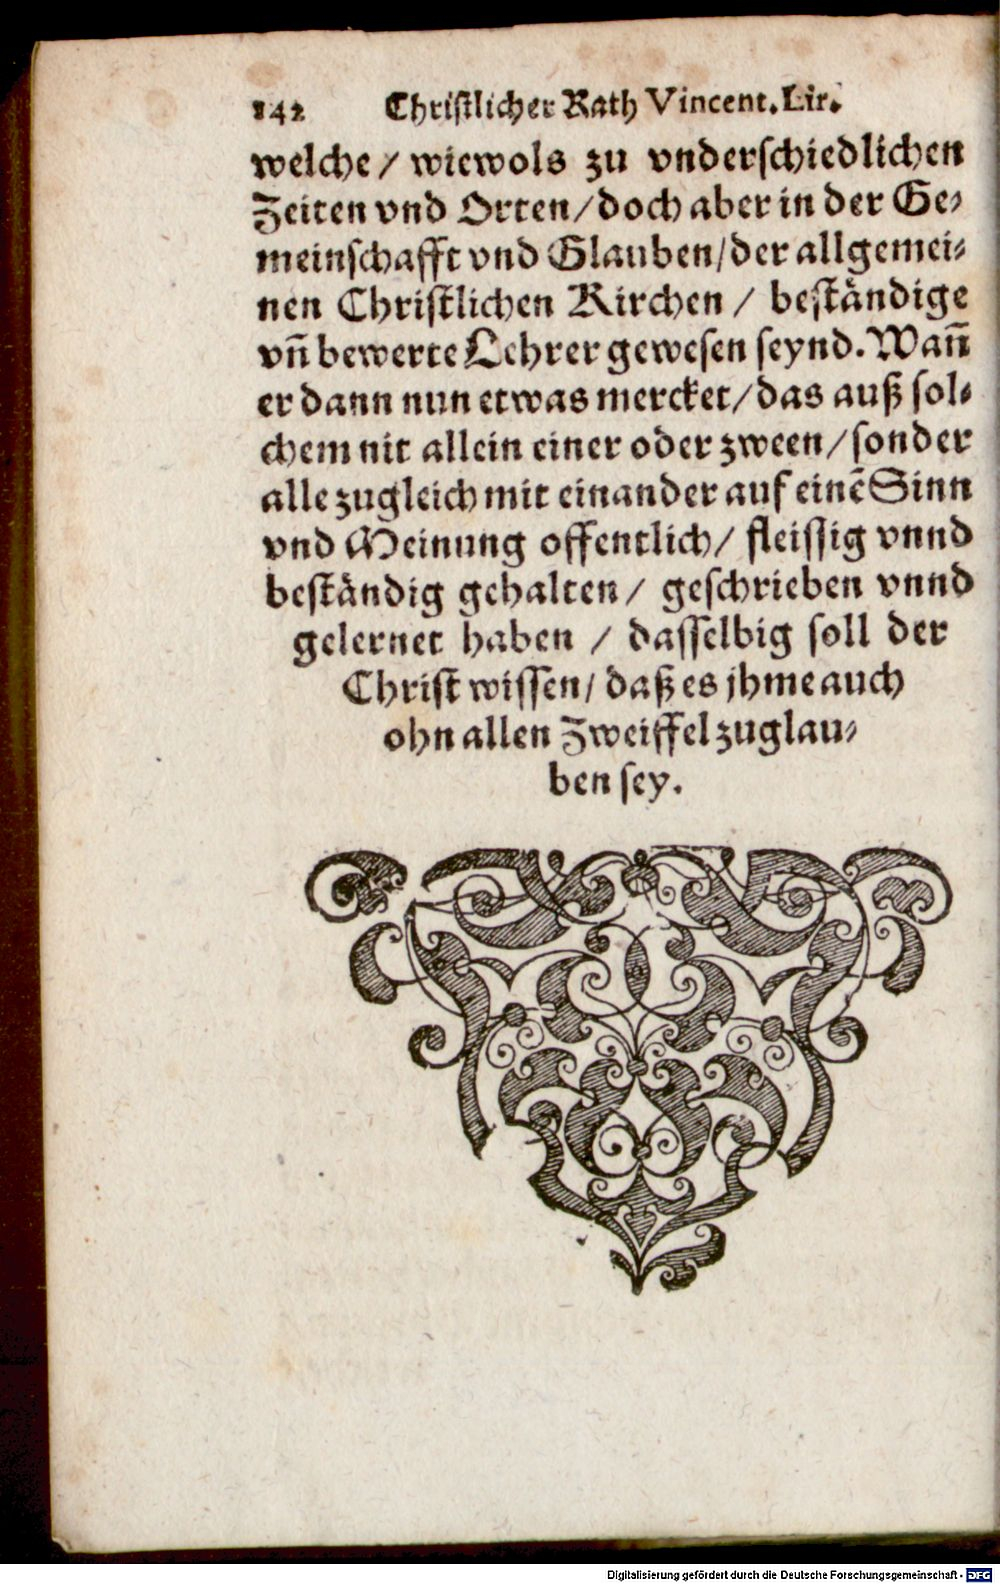 142 Christlicher Rath Vincent. Lir.
welche / wiewols zu vnderschiedlichen
Zeiten vnd Orten / doch aber in der Ge-
meinschafft vnd Glauben / der allgemei-
nen Christlichen Kirchen / beständige
vñ bewerte Lehrer gewesen seynd. Wañ
er dann nun etwas mercket / das auß sol-
chem nit allein einer oder zween / sonder
alle zugleich mit einander auf einẽ Sinn
vnd Meinung offentlich / fleissig vnnd
beständig gehalten / geschrieben vnnd
gelernet haben / dasselbig soll der
Christ wissen / daß es jhme auch
ohn allen Zweiffel zuglau-
ben sey.
Digitalisierung gefördert durch die Deutsche Forschungsgemeinschaft - DFG